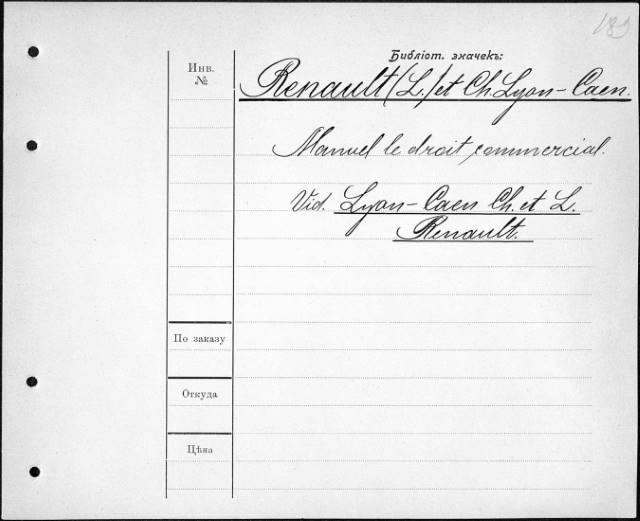 189
Библіот. значекъ:
Инв.
№
Renault (L.) et Ch. Lyon-Caen.
Manuel le droit commercial.
Vid. Lyon-Caen Ch. et L.
Renault.
По заказу
Откуда
Цѣна